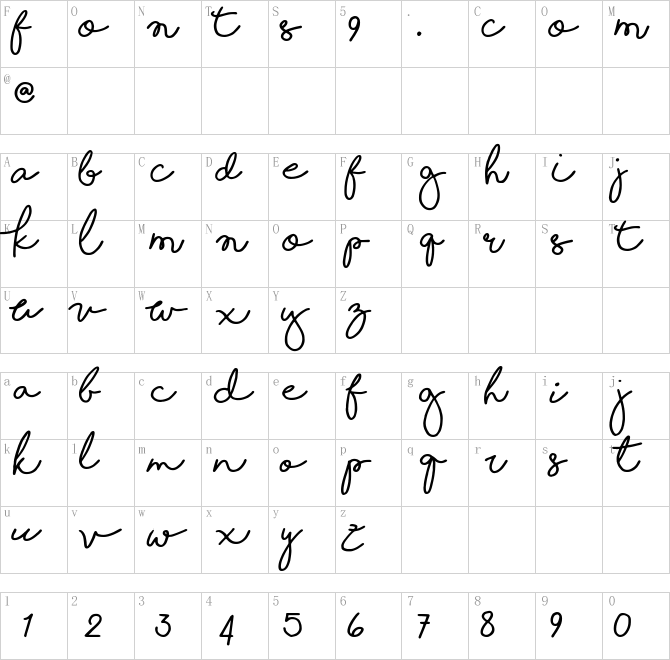 F O N T S 5 . C O M
f o n t s 9 . c o m
@
@
A B C D E F G H I J
a b c d e f g h i j
K L M N O P Q R S T
k l m n o p q r s t
U V W X Y Z
u v w x y z
a b c d e f g h i j
a b c d e f g h i j
k l m n o p q r s t
k l m n o p q r s t
u v w x y z
u v w x y z
1 2 3 4 5 6 7 8 9 0
1 2 3 4 5 6 7 8 9 0